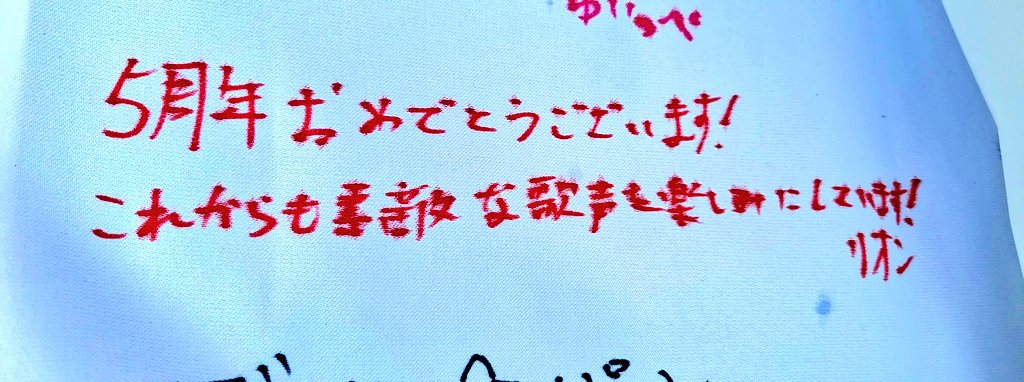 ゆいっぺ
5周年おめでとうございます!
これからも素敵な歌声を楽しみにしています!
リオン